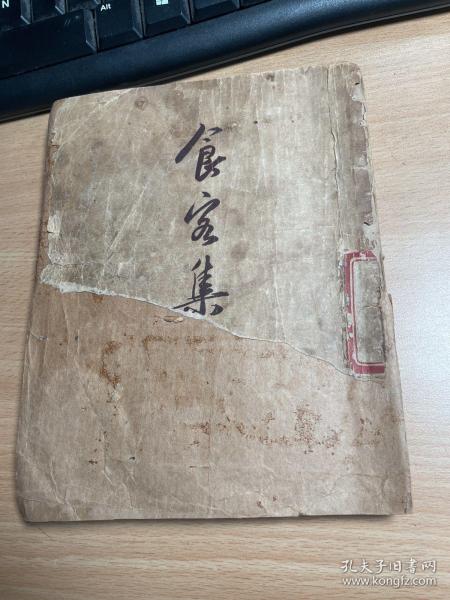 食客集
孔夫子旧书网
www.kongfz.com
Alt
N